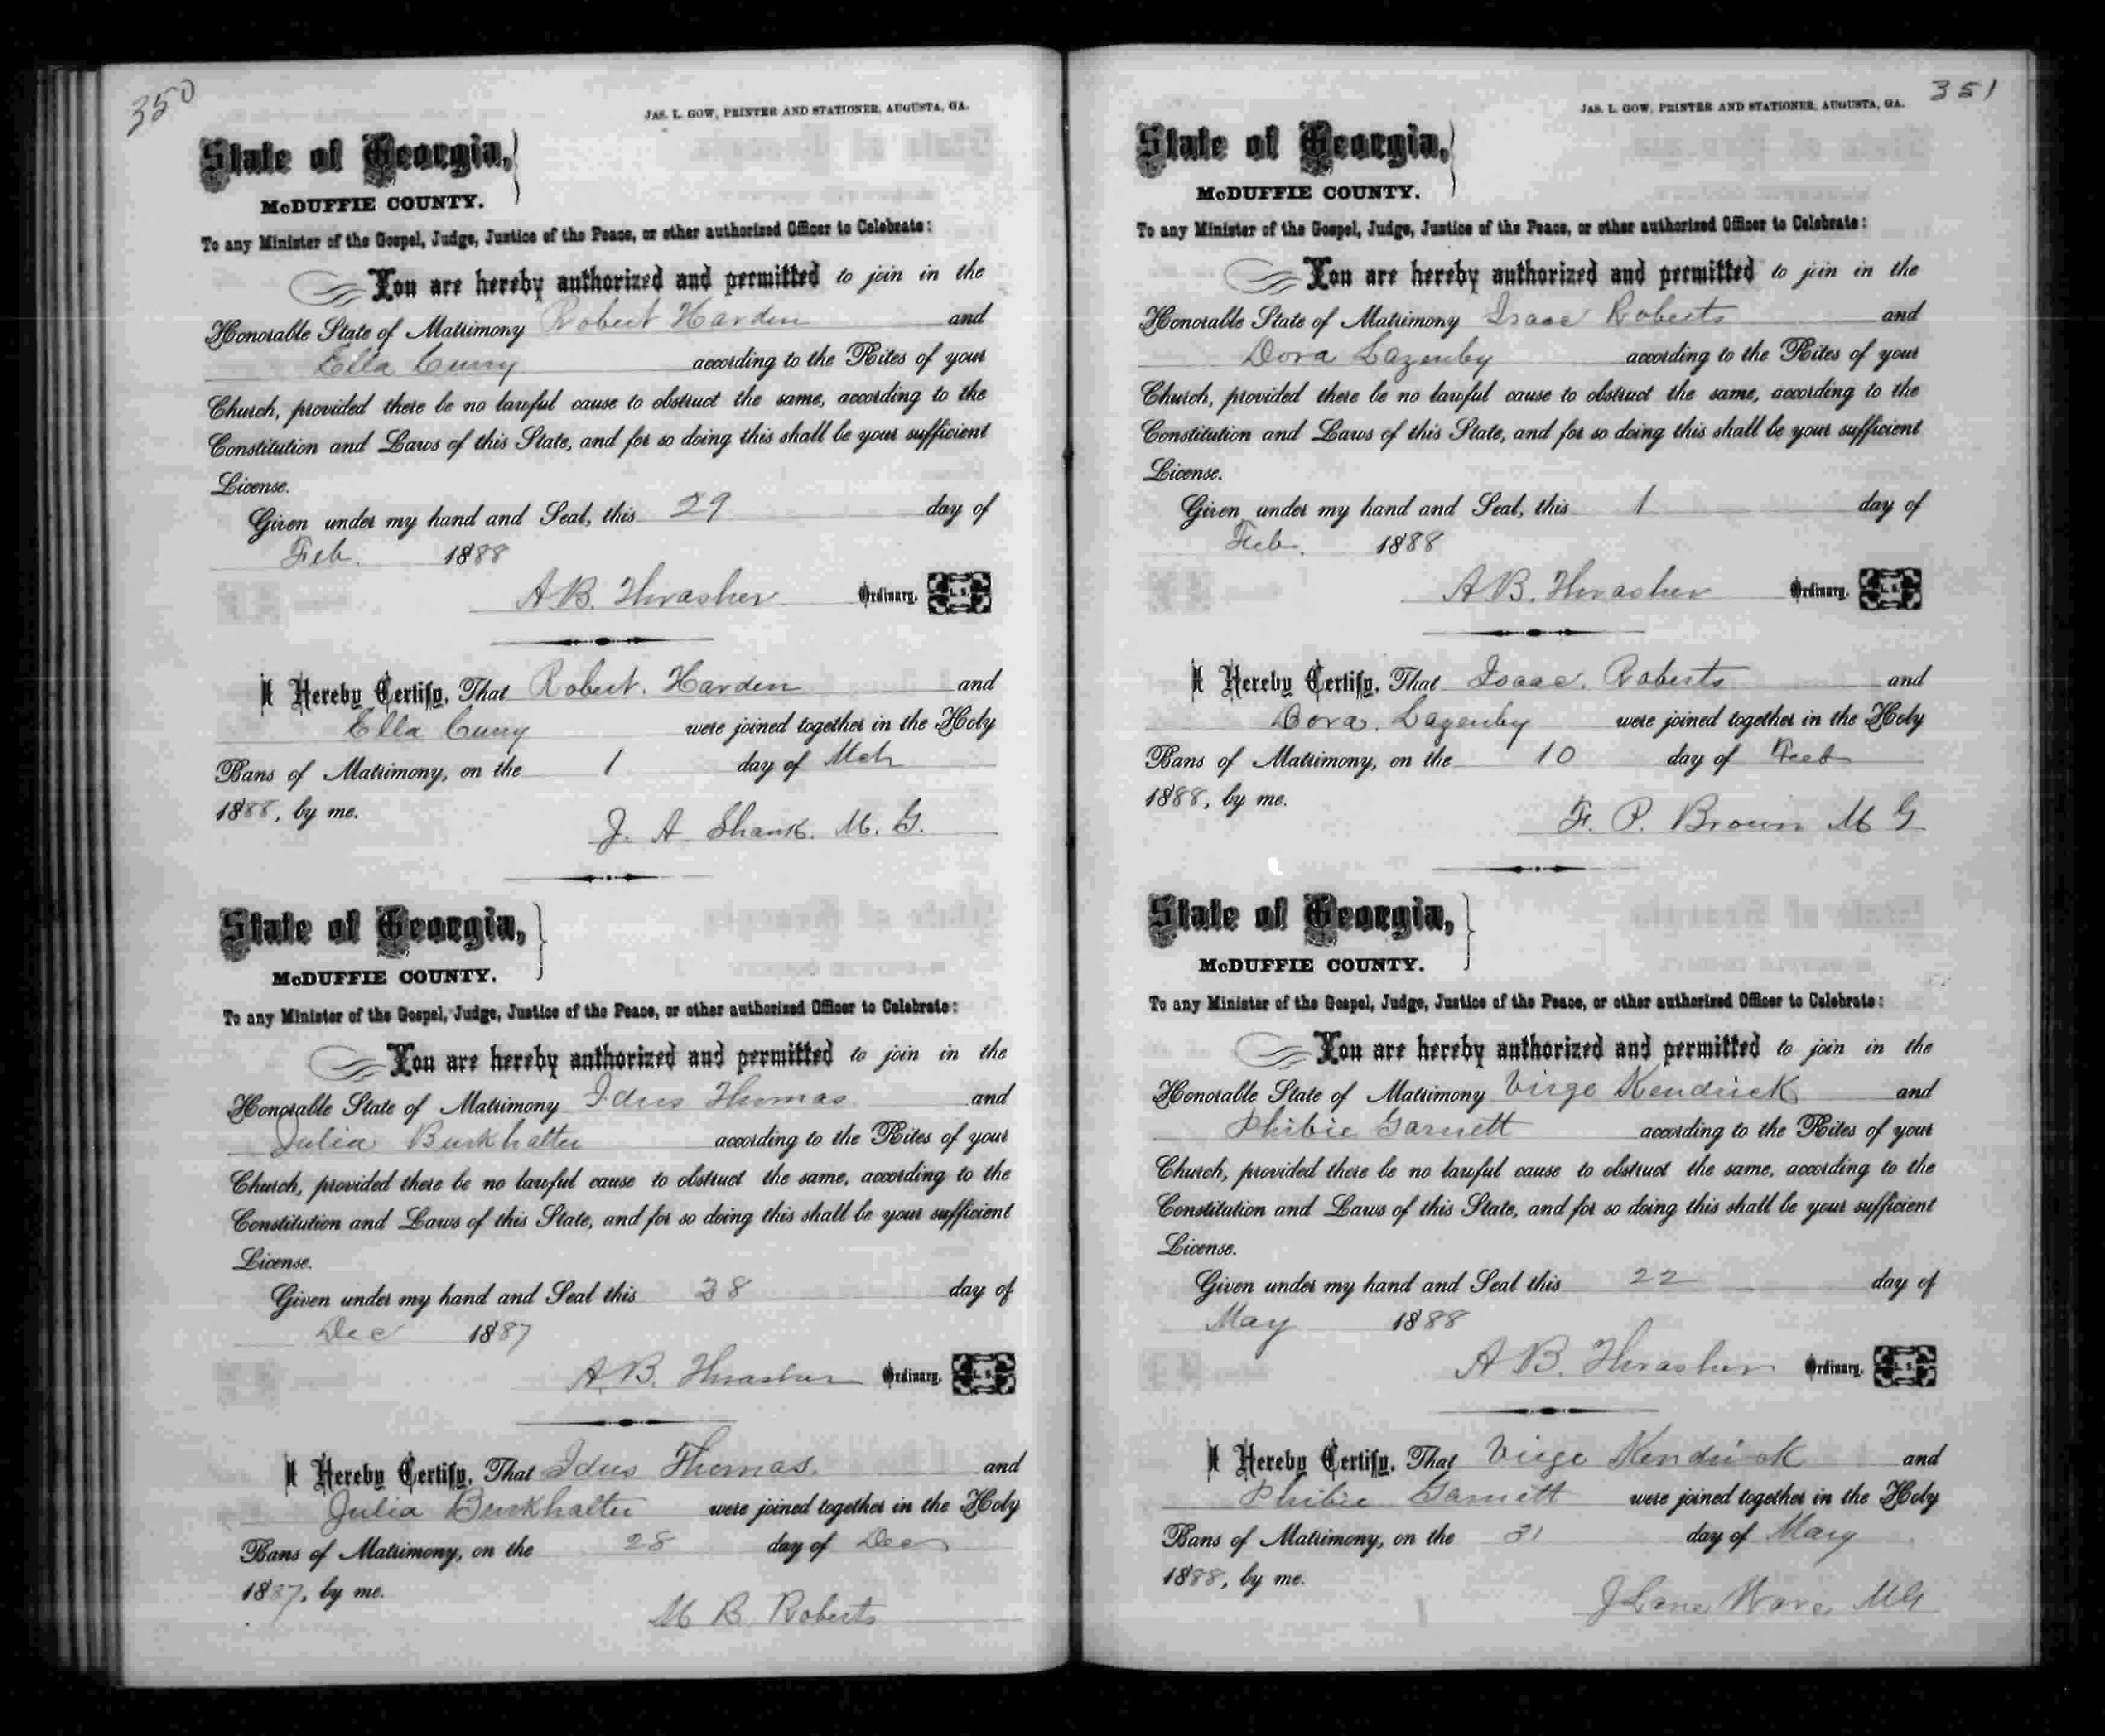 350
JAS. L. GOW, PRINTER AND STATIONER, AUGUSTA, GA.
State of Georgia,
McDUFFIE COUNTY.
To any Minister of the Gospel, Judge, Justice of the Peace, or other authorized Officer to Celebrate:
You are hereby authorized and permitted to join in the
Honorable State of Matrimony Robert Harden and
Ella Curry according to the Rites of your
Church, provided there be no lawful cause to obstruct the same, according to the
Constitution and Laws of this State, and for so doing this shall be your sufficient
License.
Given under my hand and Seal, this 29 day of
Feb. 1888
A B. Thrasher Ordinary. L. S.
I Hereby Certify, That Robert. Harden and
Ella Curry were joined together in the Holy
Bans of Matrimony, on the 1 day of Mch
1888, by me.
J. A Shank. M. G.
State of Georgia,
McDUFFIE COUNTY.
To any Minister of the Gospel, Judge, Justice of the Peace, or other authorized Officer to Celebrate:
You are hereby authorized and permitted to join in the
Honorable State of Matrimony Idus Thomas and
Julia Burkhalter according to the Rites of your
Church, provided there be no lawful cause to obstruct the same, according to the
Constitution and Laws of this State, and for so doing this shall be your sufficient
License.
Given under my hand and Seal this 28 day of
Dec 1887
A. B. Thrasher Ordinary. L. S.
I Hereby Certify, That Idus Thomas. and
Julia Burkhalter were joined together in the Holy
Bans of Matrimony, on the 28 day of Dec
1887, by me.
M B. Roberts
351
JAS. L. GOW, PRINTER AND STATIONER, AUGUSTA, GA.
State of Georgia,
McDUFFIE COUNTY.
To any Minister of the Gospel, Judge, Justice of the Peace, or other authorized Officer to Celebrate:
You are hereby authorized and permitted to join in the
Honorable State of Matrimony Isaac Roberts and
Dora Lazenby according to the Rites of your
Church, provided there be no lawful cause to obstruct the same, according to the
Constitution and Laws of this State, and for so doing this shall be your sufficient
License.
Given under my hand and Seal, this 1 day of
Feb. 1888
A B. Thrasher Ordinary. L. S.
I Hereby Certify, That Isaac. Roberts and
Dora. Lazenby were joined together in the Holy
Bans of Matrimony, on the 10 day of Feb
1888, by me.
F. P. Brown M G
State of Georgia,
McDUFFIE COUNTY.
To any Minister of the Gospel, Judge, Justice of the Peace, or other authorized Officer to Celebrate:
You are hereby authorized and permitted to join in the
Honorable State of Matrimony Virge Kendrick and
Phibie Garnett according to the Rites of your
Church, provided there be no lawful cause to obstruct the same, according to the
Constitution and Laws of this State, and for so doing this shall be your sufficient
License.
Given under my hand and Seal this 22 day of
May 1888
A B. Thrasher Ordinary. L. S.
I Hereby Certify, That Virge Kendrick and
Phibie Garnett were joined together in the Holy
Bans of Matrimony, on the 31 day of May
1888, by me.
J Lane Ware MG